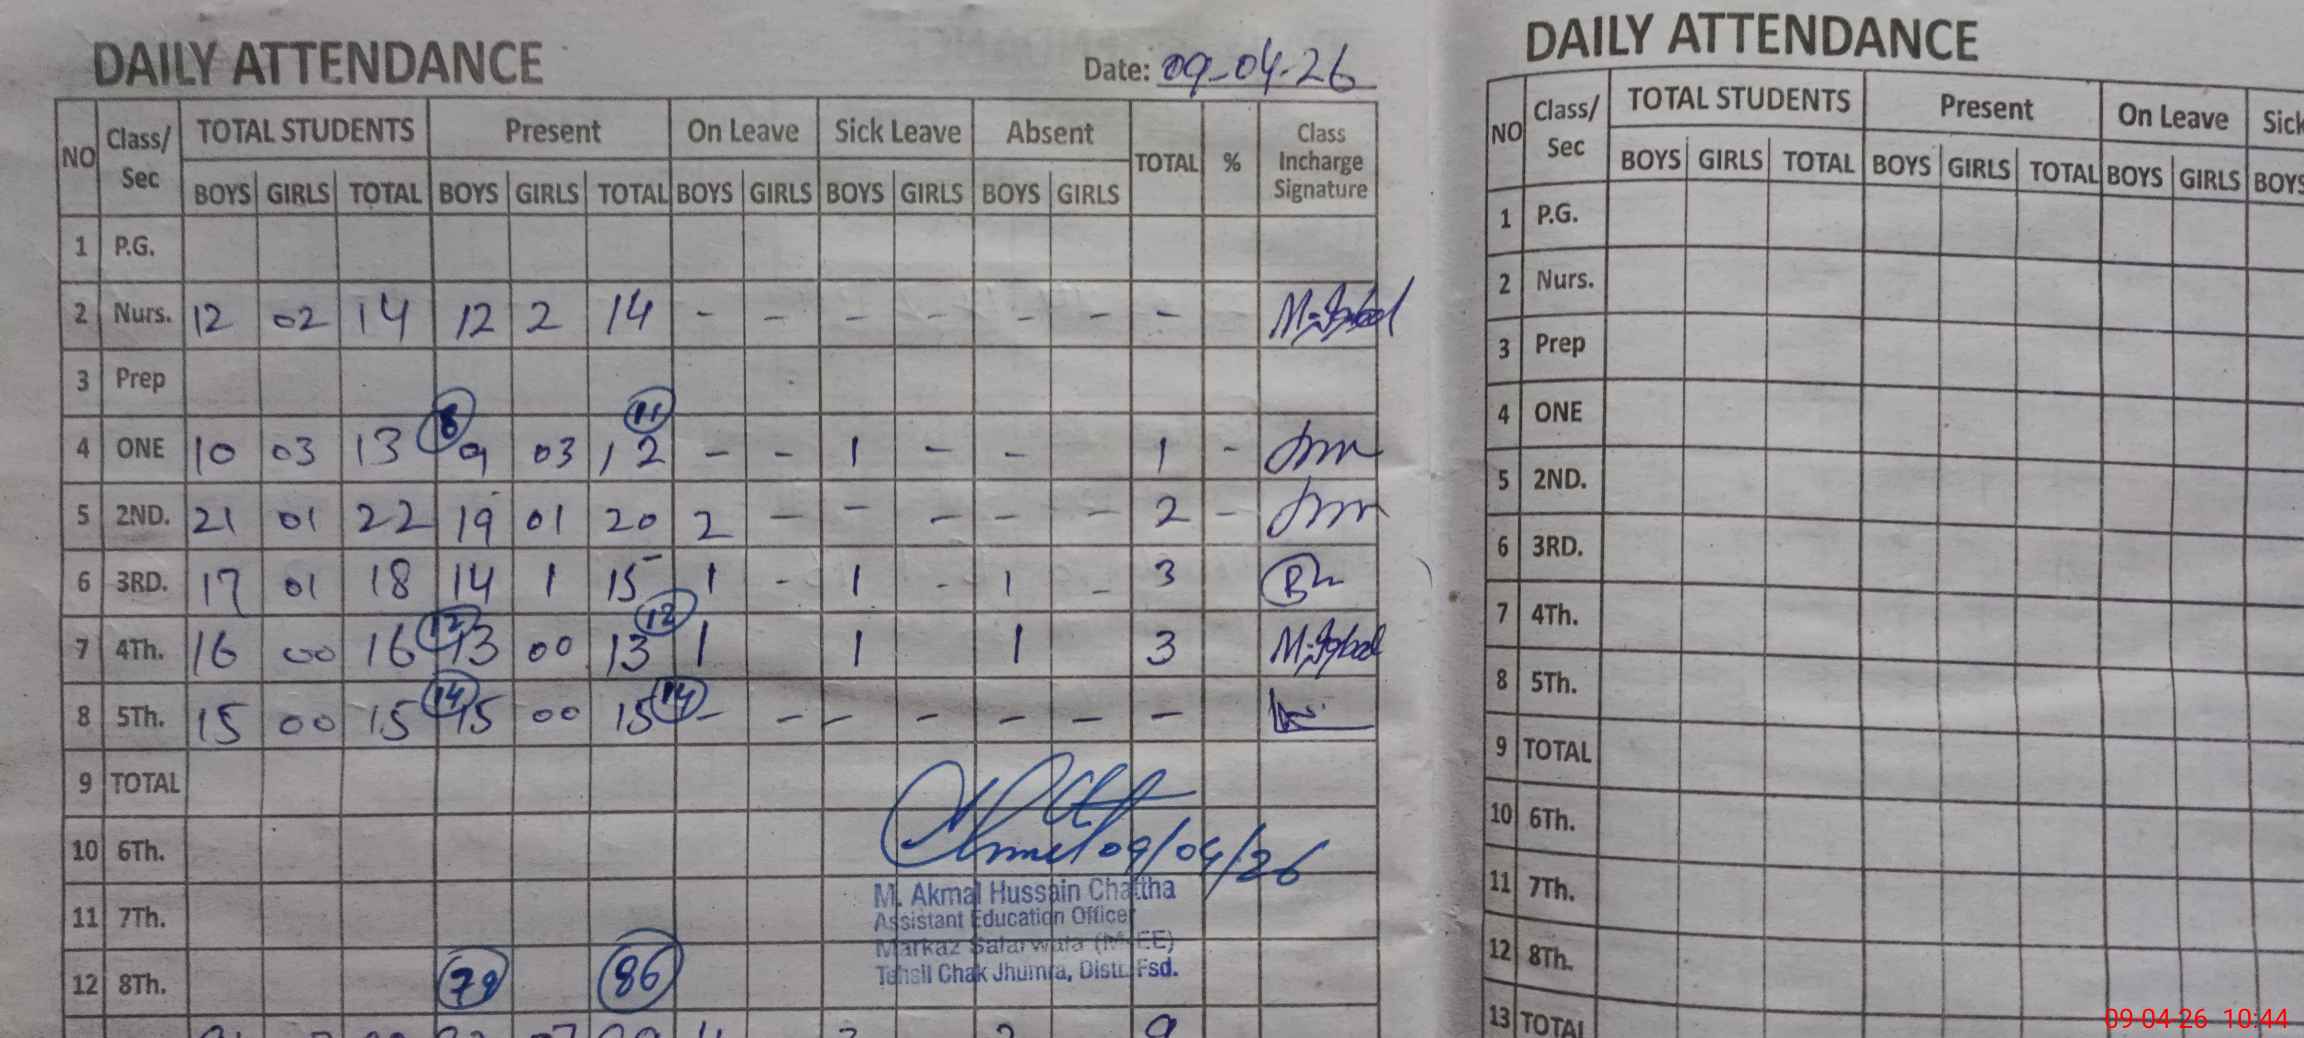 DAILY ATTENDANCE
Date: 09-04-26
NO Class/Sec TOTAL STUDENTS Present On Leave Sick Leave Absent TOTAL % Class Incharge Signature
BOYS GIRLS TOTAL BOYS GIRLS TOTAL BOYS GIRLS BOYS GIRLS BOYS GIRLS
1 P.G.
2 Nurs. 12 02 14 12 2 14 - - - - - - - M.Iqbal
3 Prep
8 11
4 ONE 10 03 13 9 03 12 - - 1 - - 1 -
5 2ND. 21 01 22 19 01 20 2 - - - - - 2 -
6 3RD. 17 01 18 14 1 15 1 - 1 - 1 - 3
12 12
7 4Th. 16 00 16 13 00 13 1 1 1 3 M.Iqbal
14 14
8 5Th. 15 00 15 15 00 15 - - - - - - -
9 TOTAL
10 6Th.
09/04/26
M. Akmal Hussain Chattha
11 7Th.
Assistant Education Officer
Markaz Salarwala (M-EE)
Tehsil Chak Jhumra, Distt. Fsd.
12 8Th. 79 86
DAILY ATTENDANCE
NO Class/Sec TOTAL STUDENTS Present On Leave Sick
BOYS GIRLS TOTAL BOYS GIRLS TOTAL BOYS GIRLS BOYS
1 P.G.
2 Nurs.
3 Prep
4 ONE
5 2ND.
6 3RD.
7 4Th.
8 5Th.
9 TOTAL
10 6Th.
11 7Th.
12 8Th.
13 TOTAL
09-04-26 10:44